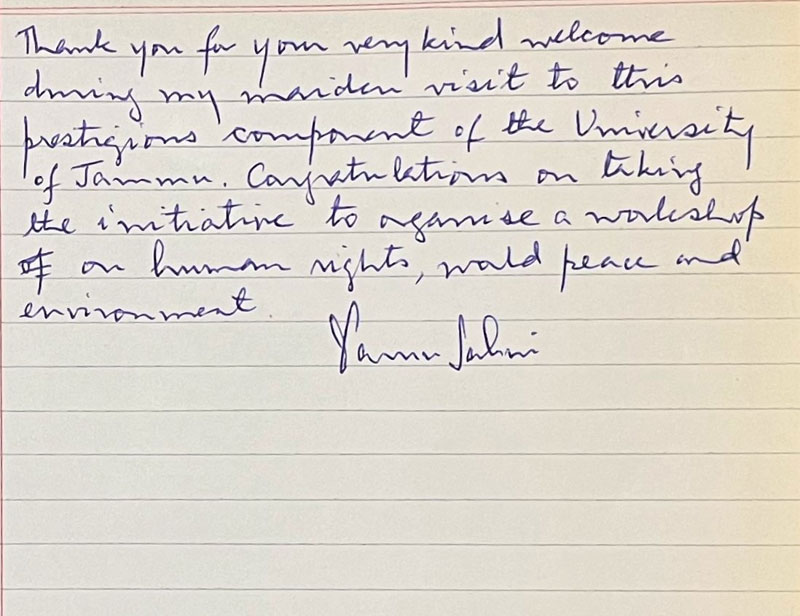 Thank you for your very kind welcome
during my maiden visit to this
prestigious component of the University
of Jammu. Congratulations on taking
the initiative to oganise a workshop
on human rights, world peace and
environment.
Varun Sahni